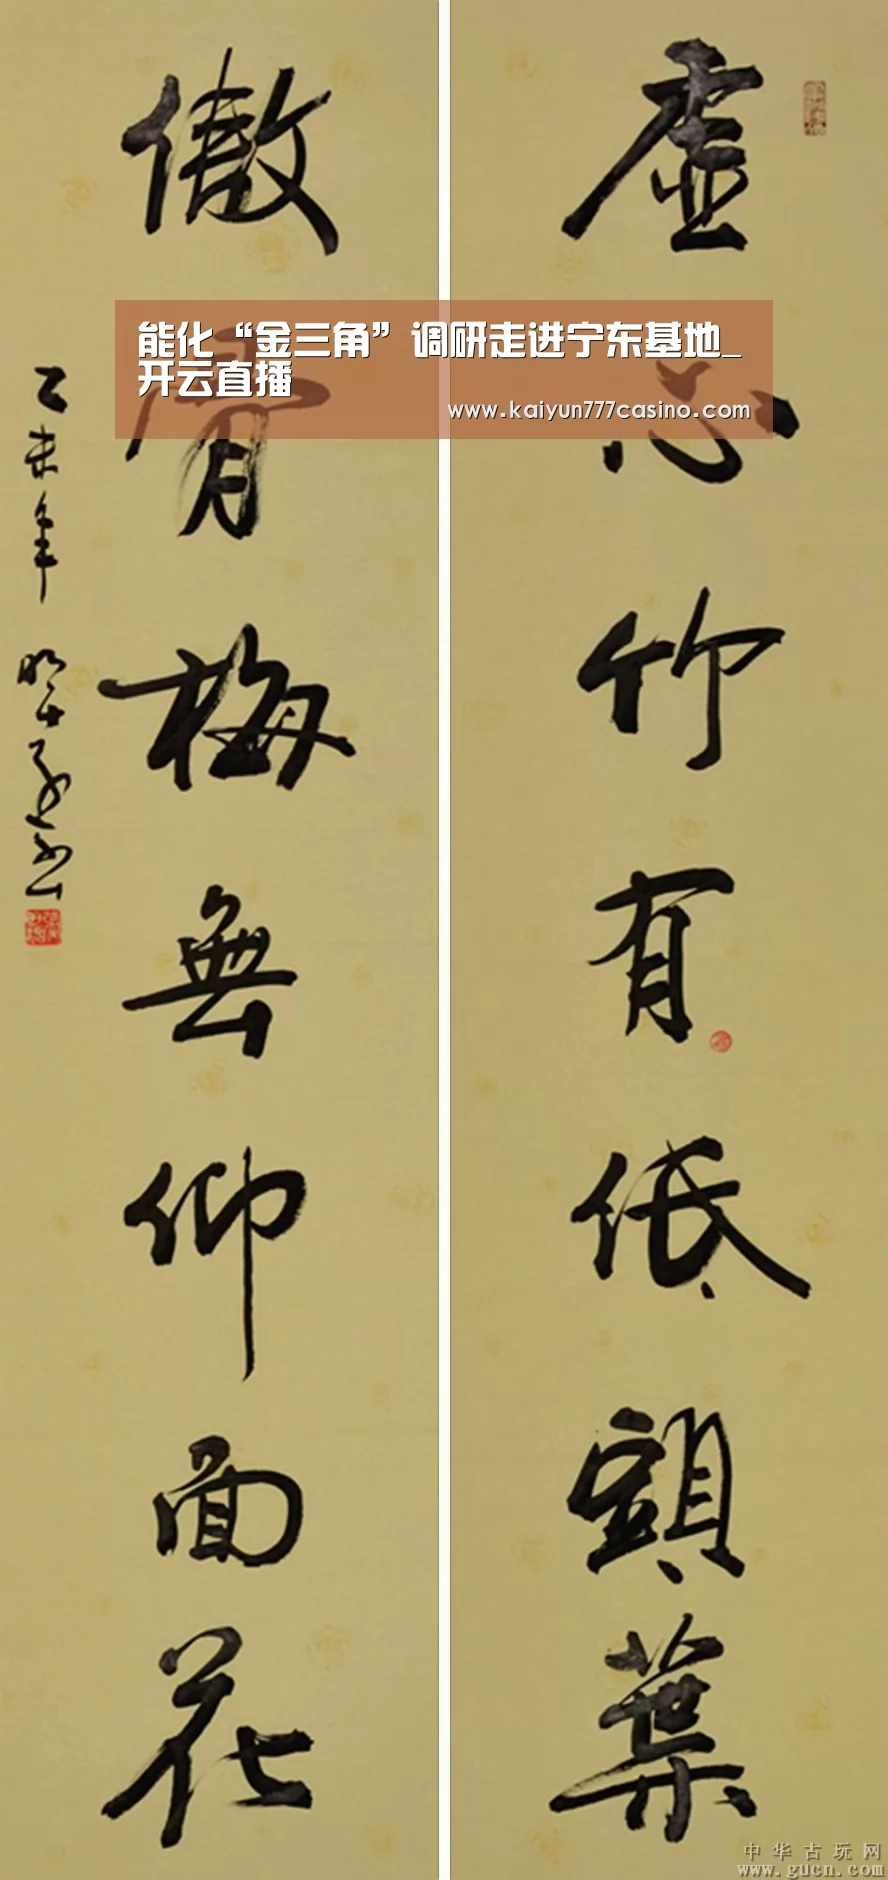 虚心竹有低頭葉
傲骨梅無仰面花
乙未年
能化“金三角”调研走进宁东基地_
开云直播
www.kaiyun777casino.com
中华古玩网
www.gucn.com